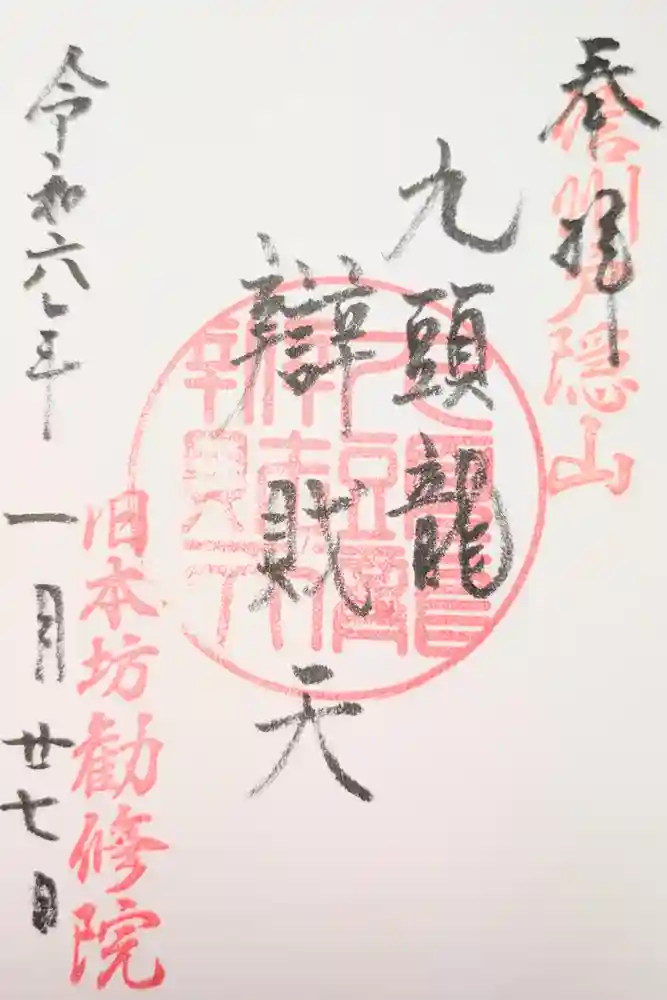 奉拝
信州戸隠山
九頭龍
辯財天
旧本坊勧修院
令和六年
一月廿七日